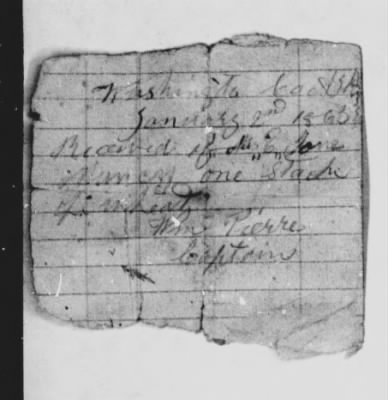 Washington Co Ark
January 2nd 1863
Received of Mr
one Stack
of wheat
Wm Pierre
Captain